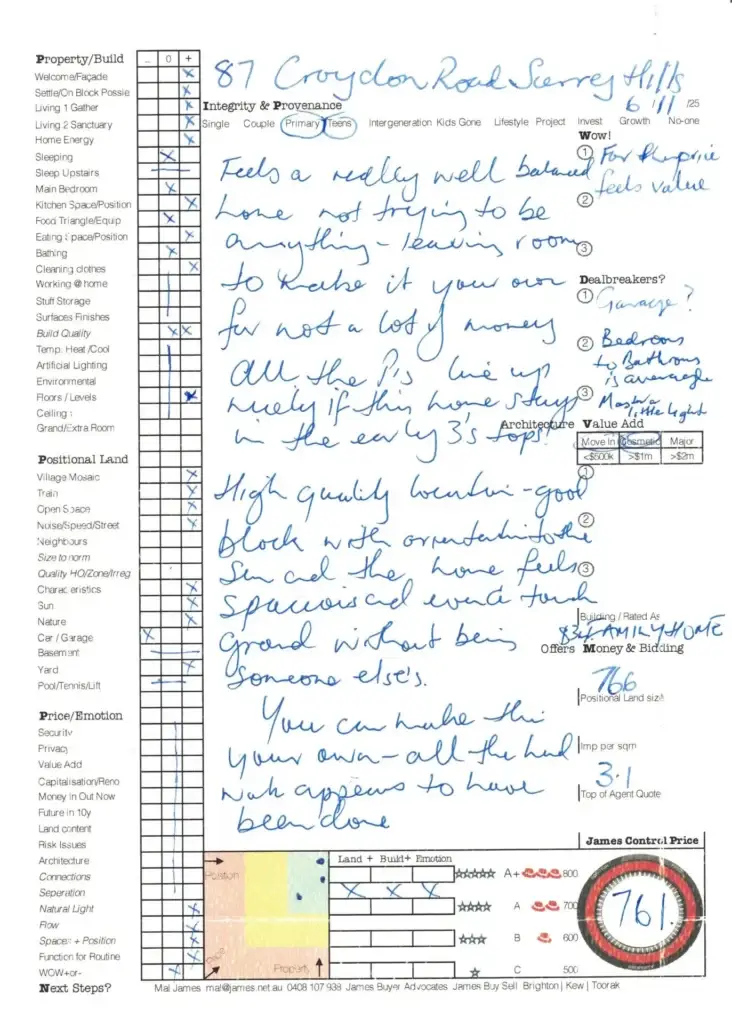 Property/Build - 0 +
87 Croydon Road Surrey Hills
6/11/25
Welcome/Façade
Settle/On Block Possie
Living 1 Gather
Living 2 Sanctuary
Home Energy
Sleeping
Sleep Upstairs
Main Bedroom
Kitchen Space/Position
Food Triangle/Equip
Eating Space/Position
Bathing
Cleaning clothes
Working @ home
Stuff Storage
Surfaces Finishes
Build Quality
Temp. Heat /Cool
Artificial Lighting
Environmental
Floors / Levels
Ceiling :
Grand/Extra Room
Positional Land
Village Mosaic
Train
Open Space
Noise/Speed/Street
Neighbours
Size to norm
Quality HO/Zone/Irreg
Characteristics
Sun
Nature
Car / Garage
Basement
Yard
Pool/Tennis/Lift
Price/Emotion
Security
Privacy
Value Add
Capitalisation/Reno
Money In Out Now
Future in 10y
Land content
Risk Issues
Architecture
Connections
Seperation
Natural Light
Flow
Spaces + Position
Function for Routine
WOW+or-
Next Steps?
Integrity & Provenance
Single Couple Primary Teens Intergeneration Kids Gone Lifestyle Project Invest Growth No-one
Feels a really well balanced
home not trying to be
anything - leaving room
to make it your own
for not a lot of money
all the P's line up
nicely if this home stays
in the early 3's tops!
High quality location - good
block with orientation to the
Sun and the home feels
spacious and even a touch
grand without being
someone else's.
You can make this
your own - all the hard
work appears to have
been done
Wow!
① For the price
feels value
②
③
Dealbreakers?
① Garage?
② Bedrooms
to Bathrooms
is average
③ Master a
little light
Architecture Value Add
Move In Cosmetic Major
<$500k >$1m >$2m
①
②
③
Building / Rated As
834 FAMILY HOME
Offers Money & Bidding
766
Positional Land size
Imp per sqm
3.1
Top of Agent Quote
James Control Price
761.
Position
Price
Property
Land + Build + Emotion
X X X
A+ 800
A 700
B 600
C 500
Mal James mal@james.net.au 0408 107 938 James Buyer Advocates James Buy Sell Brighton | Kew | Toorak